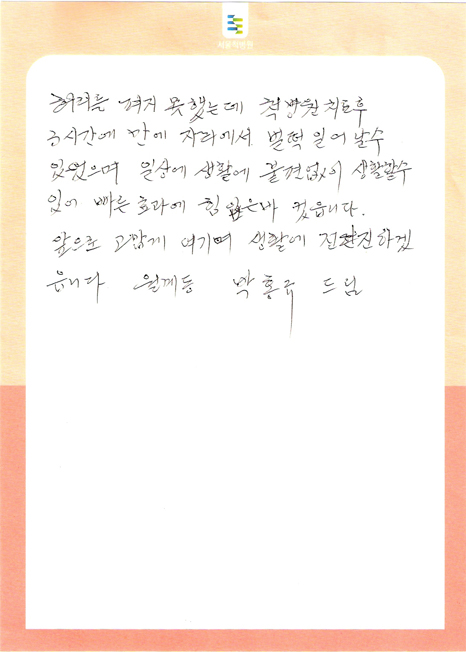 서울척병원
허리를 펴지 못했는데 척병원 치료후
3시간에 만에 자리에서 벌떡 일어날수
있었으며 일상에 생활에 불견없이 생활할수
있어 빠른 효과에 힘입은바 컸읍니다.
앞으로 고맙게 여기며 생활에 전진하겠
읍니다 월계동 박홍규 드림